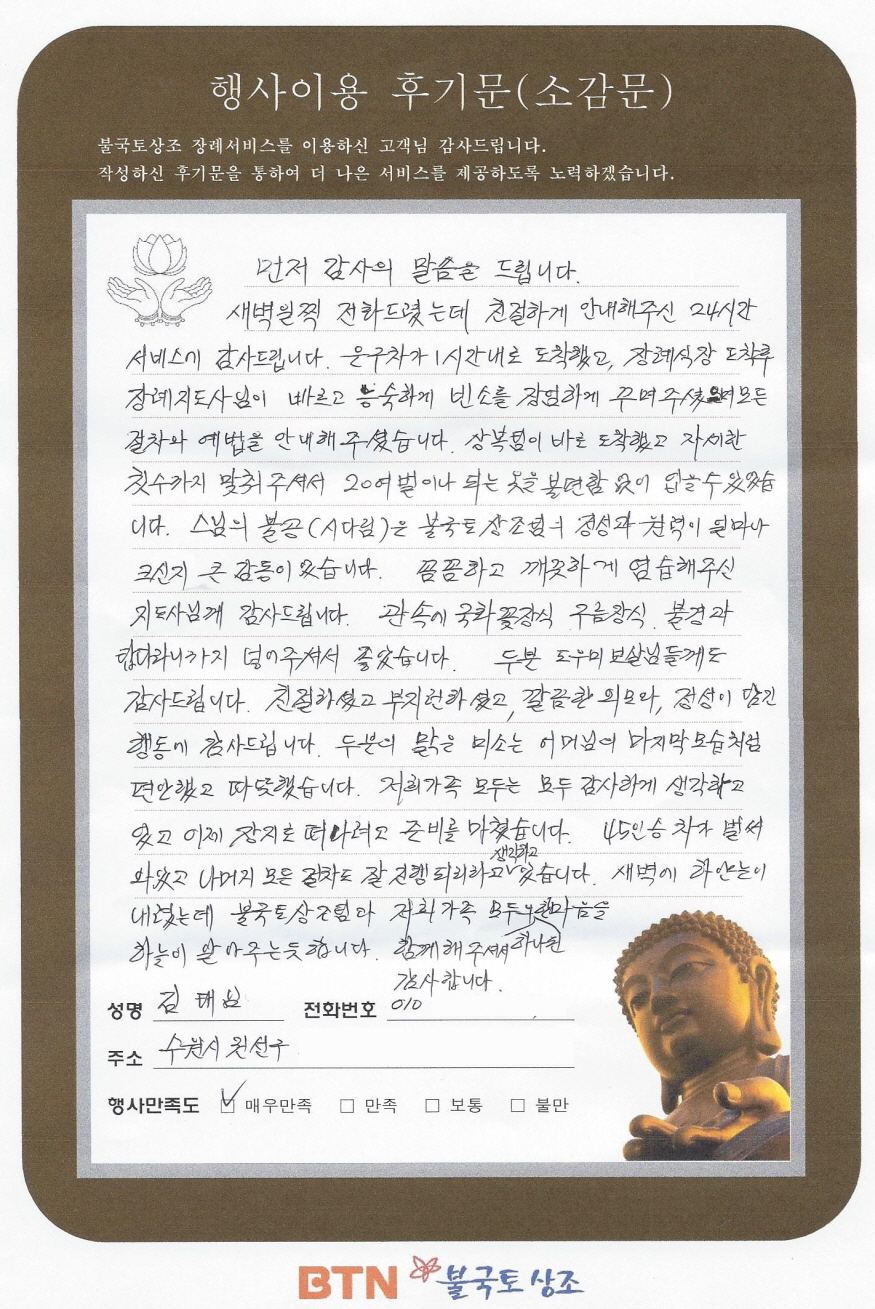 행사이용 후기문(소감문)
불국토상조 장례서비스를 이용하신 고객님 감사드립니다.
작성하신 후기문을 통하여 더 나은 서비스를 제공하도록 노력하겠습니다.
먼저 감사의 말씀을 드립니다.
새벽일찍 전화드렸는데 친절하게 안내해주신 24시간
서비스에 감사드립니다. 운구차가 1시간내로 도착했고, 장례식장 도착후
장례지도사님이 빠르고 능숙하게 빈소를 장엄하게 꾸며주셨으며 모든
절차와 예법을 안내해 주셨습니다. 상복팀이 바로 도착했고 자세한
칫수까지 맞춰주셔서 20여벌이나 되는 옷을 불편함 없이 입을수 있었습
니다. 스님의 불공(시다림)은 불국토상조팀의 정성과 원력이 얼마나
크신지 큰 감동이 있습니다. 꼼꼼하고 깨끗하게 염습해주신
지도사님께 감사드립니다. 관속에 국화꽃장식 구름장식 불경과
탑다라니까지 넣어주셔서 좋았습니다. 두분 도우미 보살님들께도
감사드립니다. 친절하셨고 부지런하셨고, 깔끔한 외모와, 정성이 담긴
행동에 감사드립니다. 두분의 맑은 미소는 어머님의 마지막모습처럼
편안했고 따뜻했습니다. 저희가족 모두는 모두 감사하게 생각하고
있고 이제 장지로 떠나려고 준비를 마쳤습니다. 45인승 차가 벌써
와있고 나머지 모든 절차도 잘 진행되리라고 생각하고 있습니다. 새벽에 하얀눈이
내렸는데 불국토상조팀과 저희가족 모두 하나된 마음을
하늘이 알아주는듯 합니다. 함께해주셔서
감사합니다.
성명 김태님 전화번호 010
주소 수원시 권선구
행사만족도 ☑ 매우만족 □ 만족 □ 보통 □ 불만
BTN 불국토상조